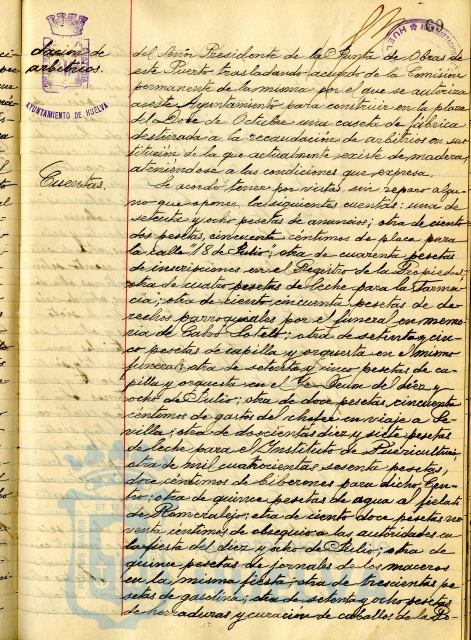 69
AYUNTAMIENTO DE HUELVA
dacion de
arbitrios.
del Señor Presidente de la Junta de Obras de
este Puerto trasladando acuerdo de la Comisión
permanente de la misma por el que se autoriza
a este Ayuntamiento para construir en la plaza
del Doce de Octubre una caseta de fábrica
destinada a la recaudación de arbitrios en sus
titución de la que actualmente existe de madera,
ateniéndose a las condiciones que expresa.
Cuentas.
Se acordó tener por vistas sin reparo algu-
no que oponer, las siguientes cuentas: una de
setenta y ocho pesetas de anuncios; otra de ciento
dos pesetas, cincuenta céntimos de placa para
la calle "18 de Julio"; otra de cuarenta pesetas
de inscripciones en el Registro de la Propiedad;
otra de cuatro pesetas de leche para la Farma-
cia; otra de ciento cincuenta pesetas de de-
rechos parroquiales por el funeral en memo-
ria de Calvo Sotelo; otra de setenta y cin-
co pesetas de capilla y orquesta en el mismo
funeral; otra de setenta y cinco pesetas de ca-
pilla y orquesta en el Te-Deum de diez y
ocho de Julio; otra de doce pesetas, cincuenta
céntimos de gastos del chofer en viaje a Se-
villa; otra de doscientas diez y siete pesetas
de leche para el Instituto de Puericultura;
otra de mil cuatrocientas sesenta pesetas,
doce céntimos de biberones para dicho Cen-
tro; otra de quince pesetas de agua al fielato
de Romeralejo; otra de ciento doce pesetas no-
venta céntimos de obsequio a las autoridades en
la fiesta del diez y ocho de Julio; otra de
quince pesetas de jornales de los maceros
en la misma fiesta; otra de trescientas pe-
setas de gasolina; otra de setenta y ocho pesetas
de herraduras y curación de caballos de la P-